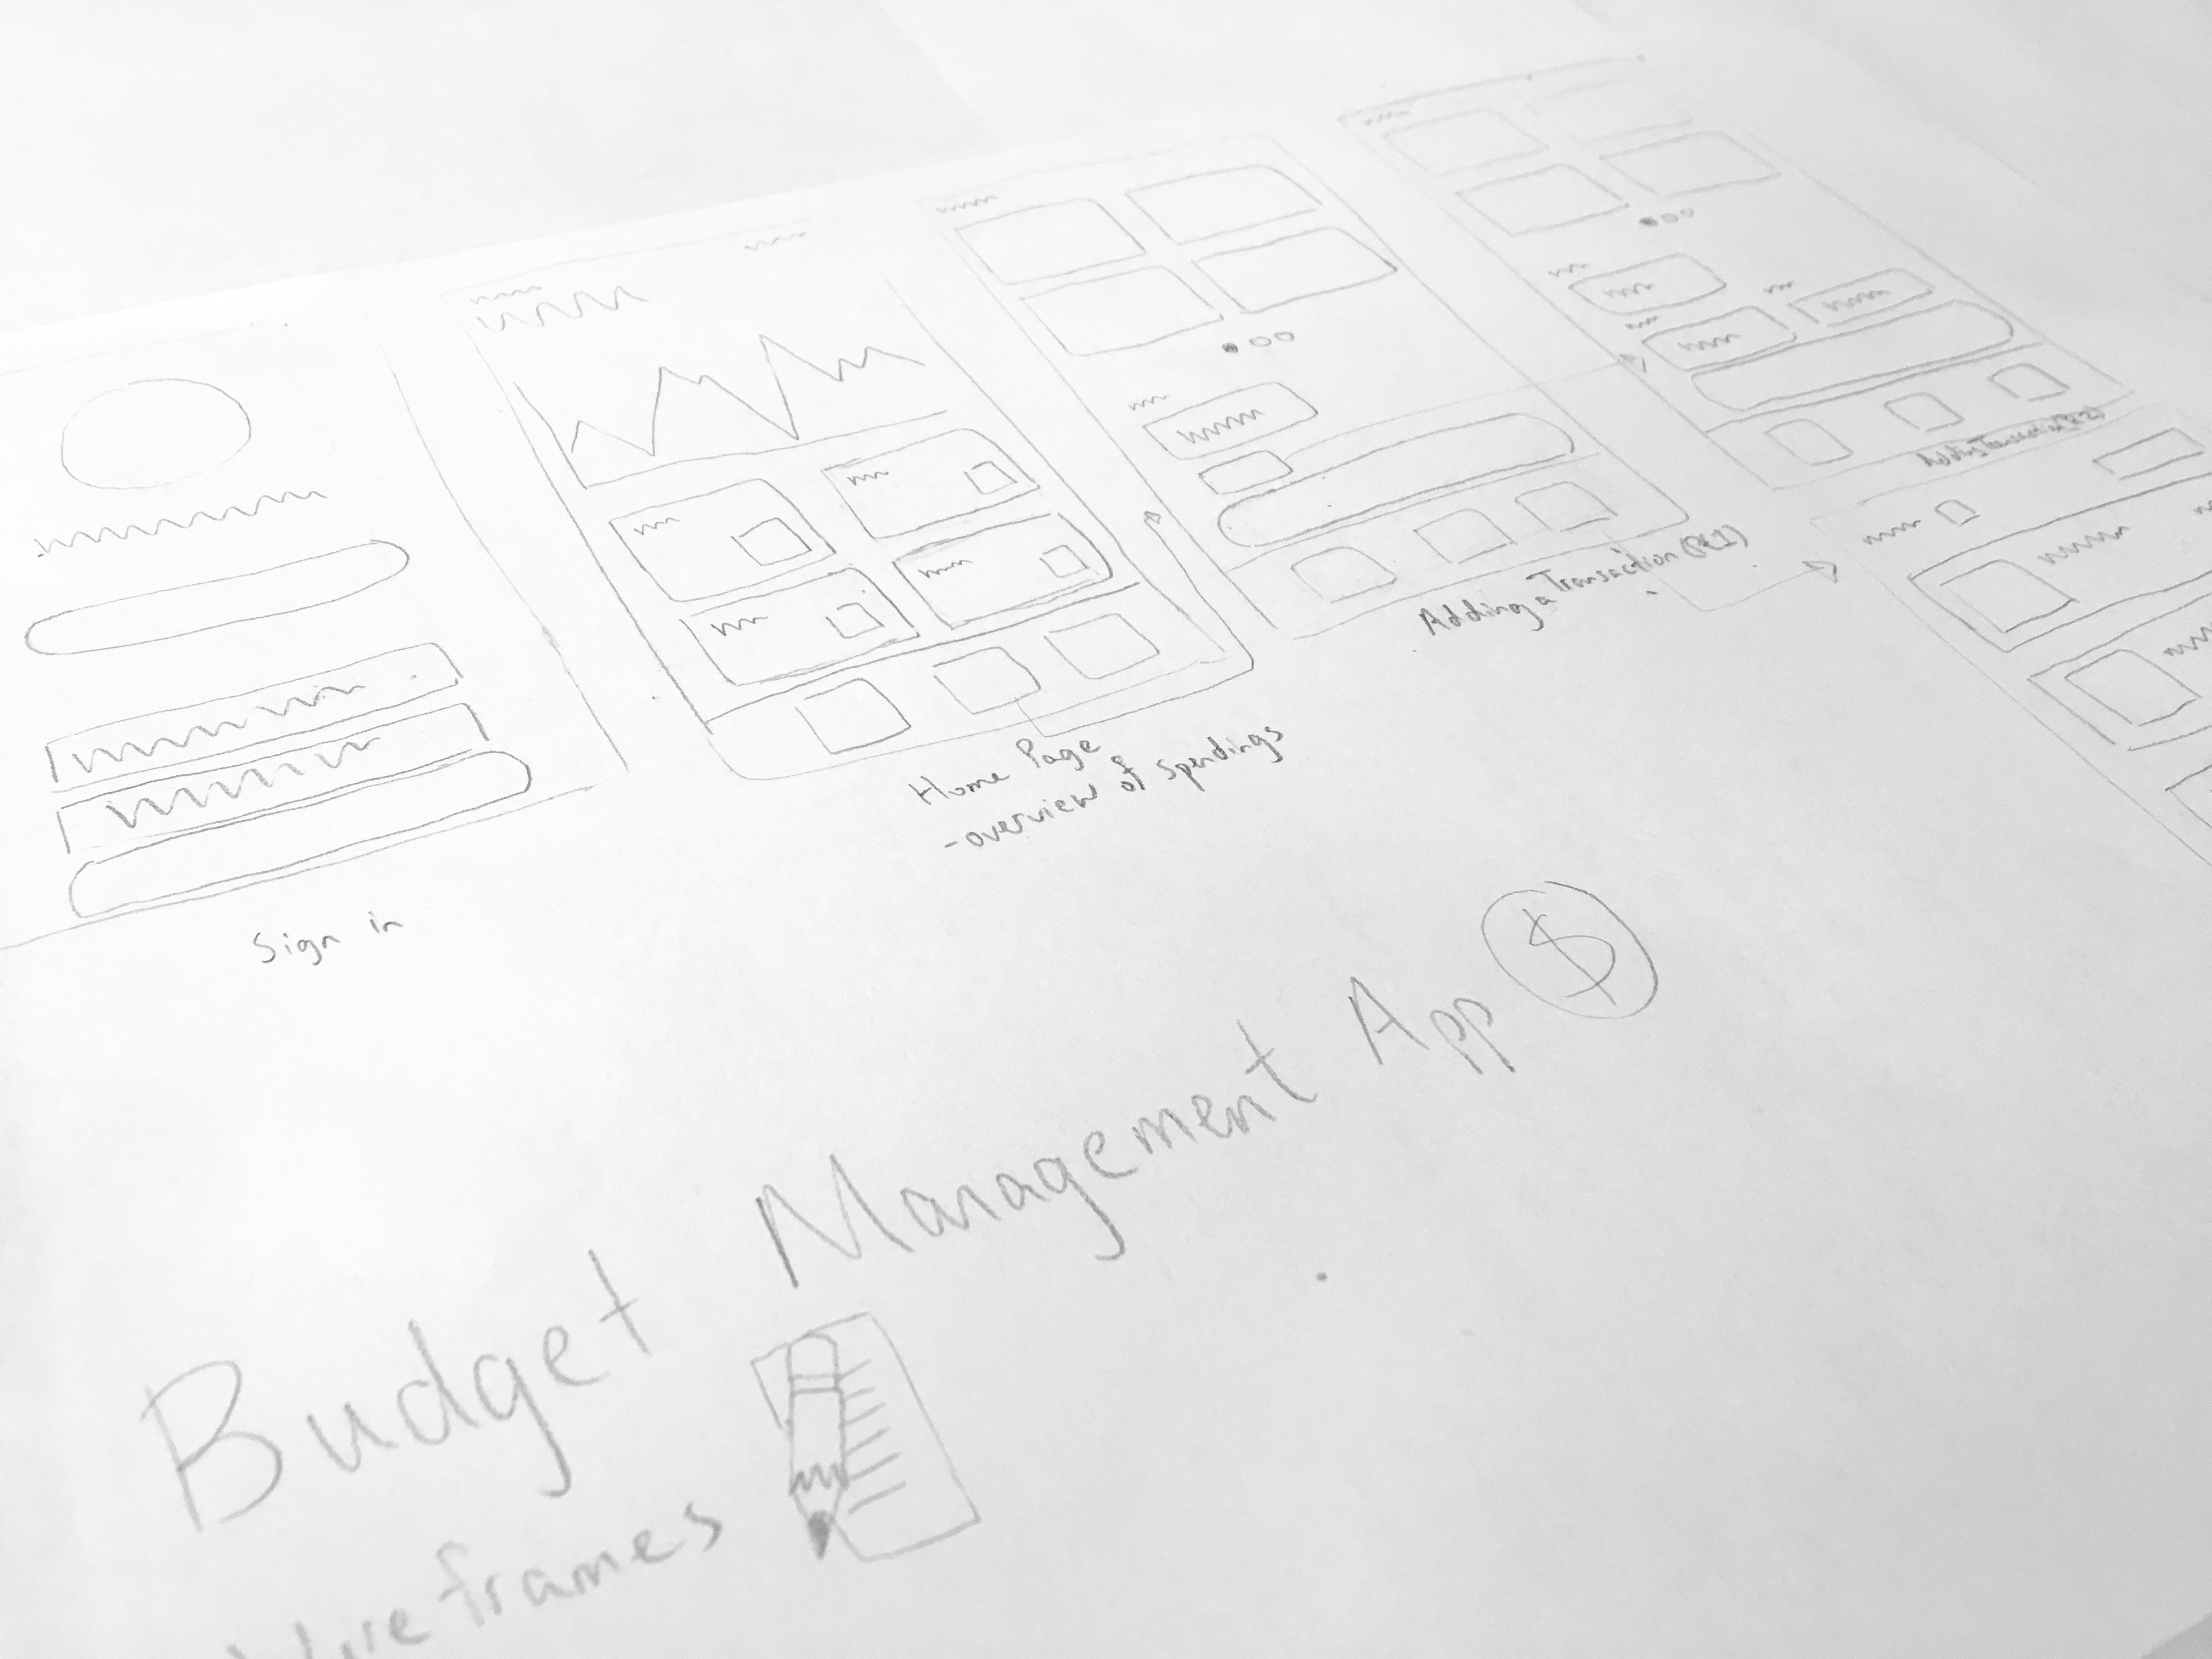 Sign in
Home Page
-overview of spendings
Adding a Transaction (Pt 1)
Adding Transaction (Pt 2)
Budget Management App $
Wireframes